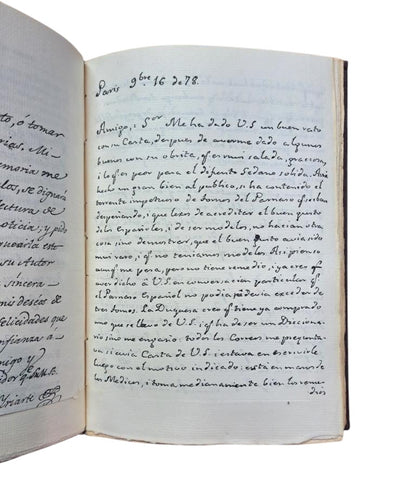 to, ó tomar
rias. Mi
emoria me
los, se dignará
lectura de
noticia; y pido
su Autor
sincera
mis deseos de
felicidades que
nfianza a
migo y
Yriarte
Paris 9.bre 16 de 78.
Amigo, i S.or Me ha dado V.S. un buen rato
con su Carta, despues de averme dado algunos
buenos con su obrita, q.e es mui salada, graciosa,
i lo q.e es peor para el difunto Sedano solida. Ha
hecho un gran bien al publico, si ha contenido el
torrente impetuoso de tomos del Parnaso q.e se iban
despeñando, i que lexos de acreditar el buen gusto
de los Españoles, i de ser modelos, no hacian otra
cosa sino demostrar, que el buen gusto avia sido
mui raro, i q.e no teniamos modelos. Assi pienso
aunq.e me pesa, pero no tiene remedio, i ya creo q.e
averdicho à V.S. en conversacion particular q.e
el Parnaso Español no podia ni devia exceder de
tres tomos. La Duquesa creo q.e tiene ya comprado
lo de V.S. i q.e ha de ser un Diccona
rio sino me engaño: todos los Correos me pregunta
va si avia Carta de V.S. i estava en escrivirle
luego con el motivo indicado: esta en manos de
los Medicos, i toma medianamente bien los reme
dios